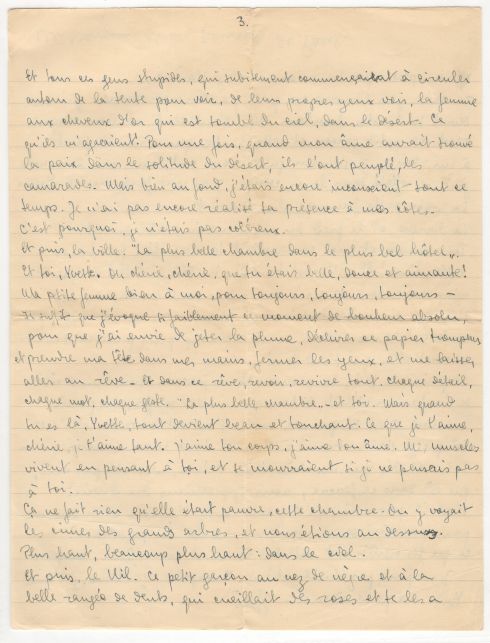 3.
Et tous ces gens stupides, qui subitement commençaient à circuler
autour de la tente pour voir, de leurs propres yeux voir, la femme
aux cheveux d'or qui est tombé du ciel, dans le désert. Ce
qu'ils m'agacaient! Pour une fois, quand mon âme aurait trouvé
la paix dans le solitude du désert, ils l'ont peuplé, les
camarades. Mais bien au fond, j'étais encore inconscient tout ce
temps. Je n'ai pas encore réalisé ta présence à mes côtés.
C'est pourquoi, je n'étais pas coléreux.
Et puis, la ville. "La plus belle chambre dans le plus bel hôtel".
Et toi, Yvette. Oh chérie, chérie, que tu étais belle, douce et aimante!
Ma ptite femme bien à moi, pour toujours, toujours, toujours -
Il suffit que j'évoque si faiblement ce moment de bonheur absolu,
pour que j'ai envie de jeter la plume, déchirer ce papier trompeur
et prendre ma tête dans mes mains, fermer les yeux, et me laisser
aller au rêve - Et dans ce rêve, revoir, revivre tout, chaque détail,
chaque mot, chaque geste. "La plus belle chambre"... et toi. Mais quand
tu es là, Yvette, tout devient beau et touchant. Ce que je t'aime,
chérie, je t'aime tant. J'aime ton corps, j'aime ton âme. Mes muscles
vivent en pensant à toi, et se mourraient si je ne pensais pas
à toi.
Ça ne fait rien qu'elle était pauvre, cette chambre. On y voyait
les cimes des grands arbres, et nous étions au dessus
Plus haut, beaucoup plus haut: dans le ciel.
Et puis, le Nil. Ce petit garçon au nez de nègre, et à la
belle rangée de dents, qui cueillait des roses et te les a